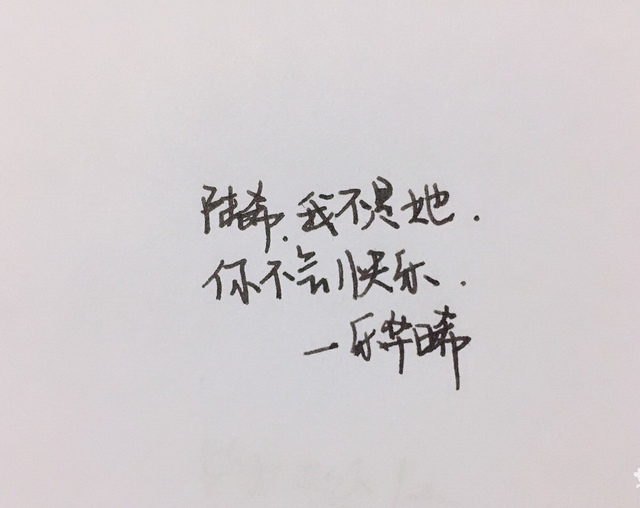 陆晞.我不是她.
你不会快乐.
一乐华晞